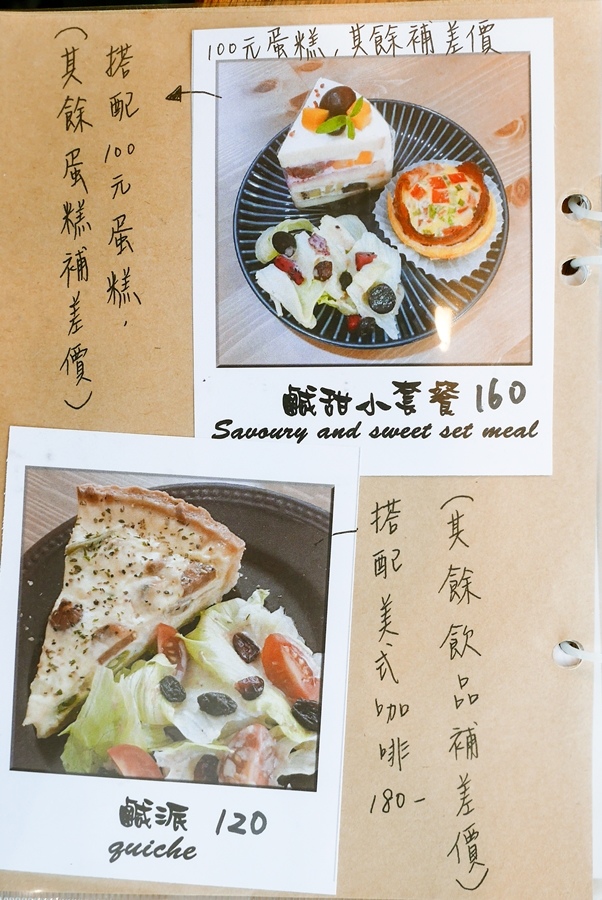 100元蛋糕,其餘補差價
搭配100元蛋糕,
(其餘蛋糕補差價)
鹹甜小套餐 160
Savoury and sweet set meal
搭配美式咖啡 180-
(其餘飲品補差價)
鹹派 120
quiche